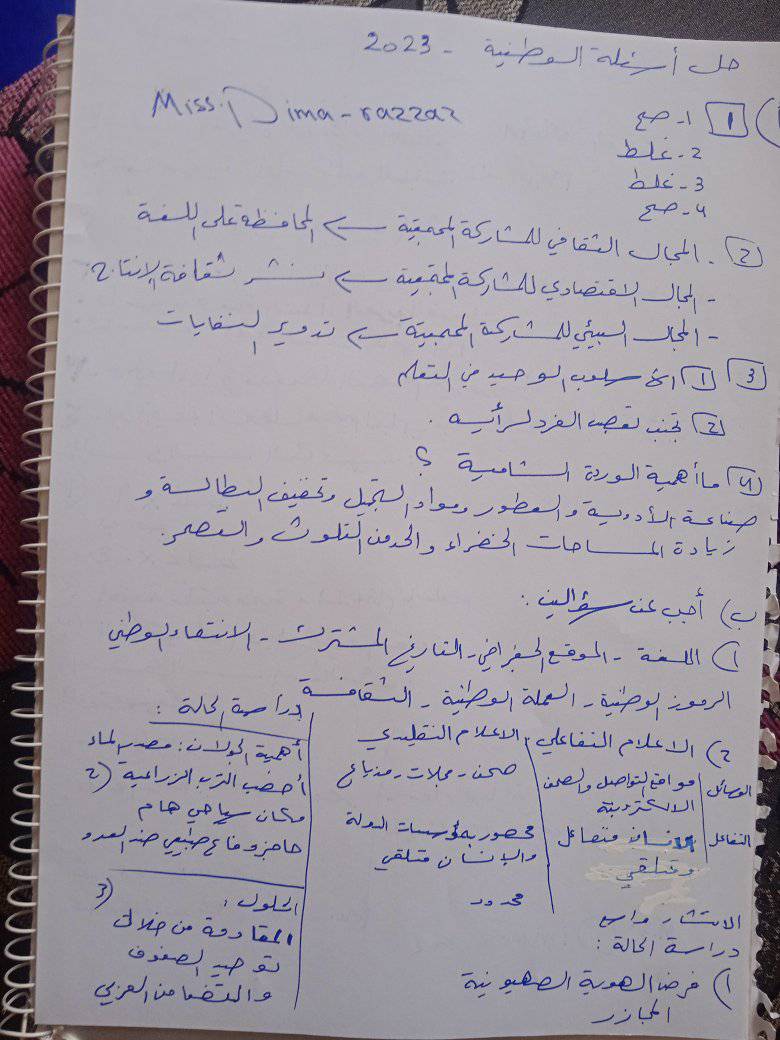 حل أسئلة الوطنية - 2023
Miss. Dima - razzaz
1) 1 1- صح
2- غلط
3- غلط
4- صح
2 - المجال الثقافي للمشاركة المجتمعية ← المحافظة على اللغة
- المجال الاقتصادي للمشاركة المجتمعية ← نشر ثقافة الإنتاج
- المجال البيئي للمشاركة المجتمعية ← تدوير النفايات
3 1 الأسلوب الوحيد في التعلم
2 تجنب تعصب الفرد لرأيه .
4 ما أهمية الوردة الشامية ؟
صناعة الأدوية والعطور ومواد التجميل وتخفيف البطالة و
زيادة المساحات الخضراء والحد من التلوث والتصحر.
ب) أجب عن سؤالين :
1) اللغة - الموقع الجغرافي - التاريخ المشترك - الانتماء الوطني
الرموز الوطنية - العملة الوطنية - الثقافة
2) الاعلام التفاعلي - الاعلام التقليدي
الوسائل مواقع التواصل والصحف الالكترونية صحف - مجلات - مذياع
التفاعل الانسان متفاعل ومتلقي محصور بمؤسسات الدولة والإنسان متلقي
الانتشار واسع محدود
دراسة الحالة :
1) فرض الهوية الصهيونية
المجازر
دراسة الحالة :
أهمية الجولان : مصدر الماء
2) أخصب الترب الزراعية
مكان سياحي هام
حاجز دفاع طبيعي ضد العدو
3) الحلول :
المقاومة من خلال
توحيد الصفوف
والتضامن العربي